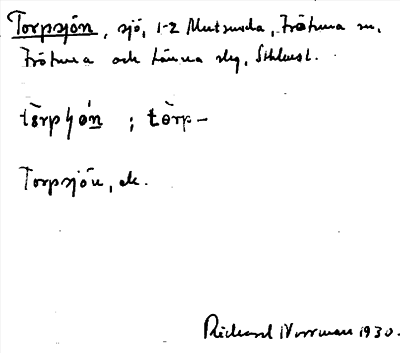 Torpsjön, sjö, 1-2 Mutsunda, Frötuna sn,
Frötuna och Länna slg, Sthlmsl.
tòrpʃön ; tòrp-
Torpsjön, ek.
Richard Norrman 1930.